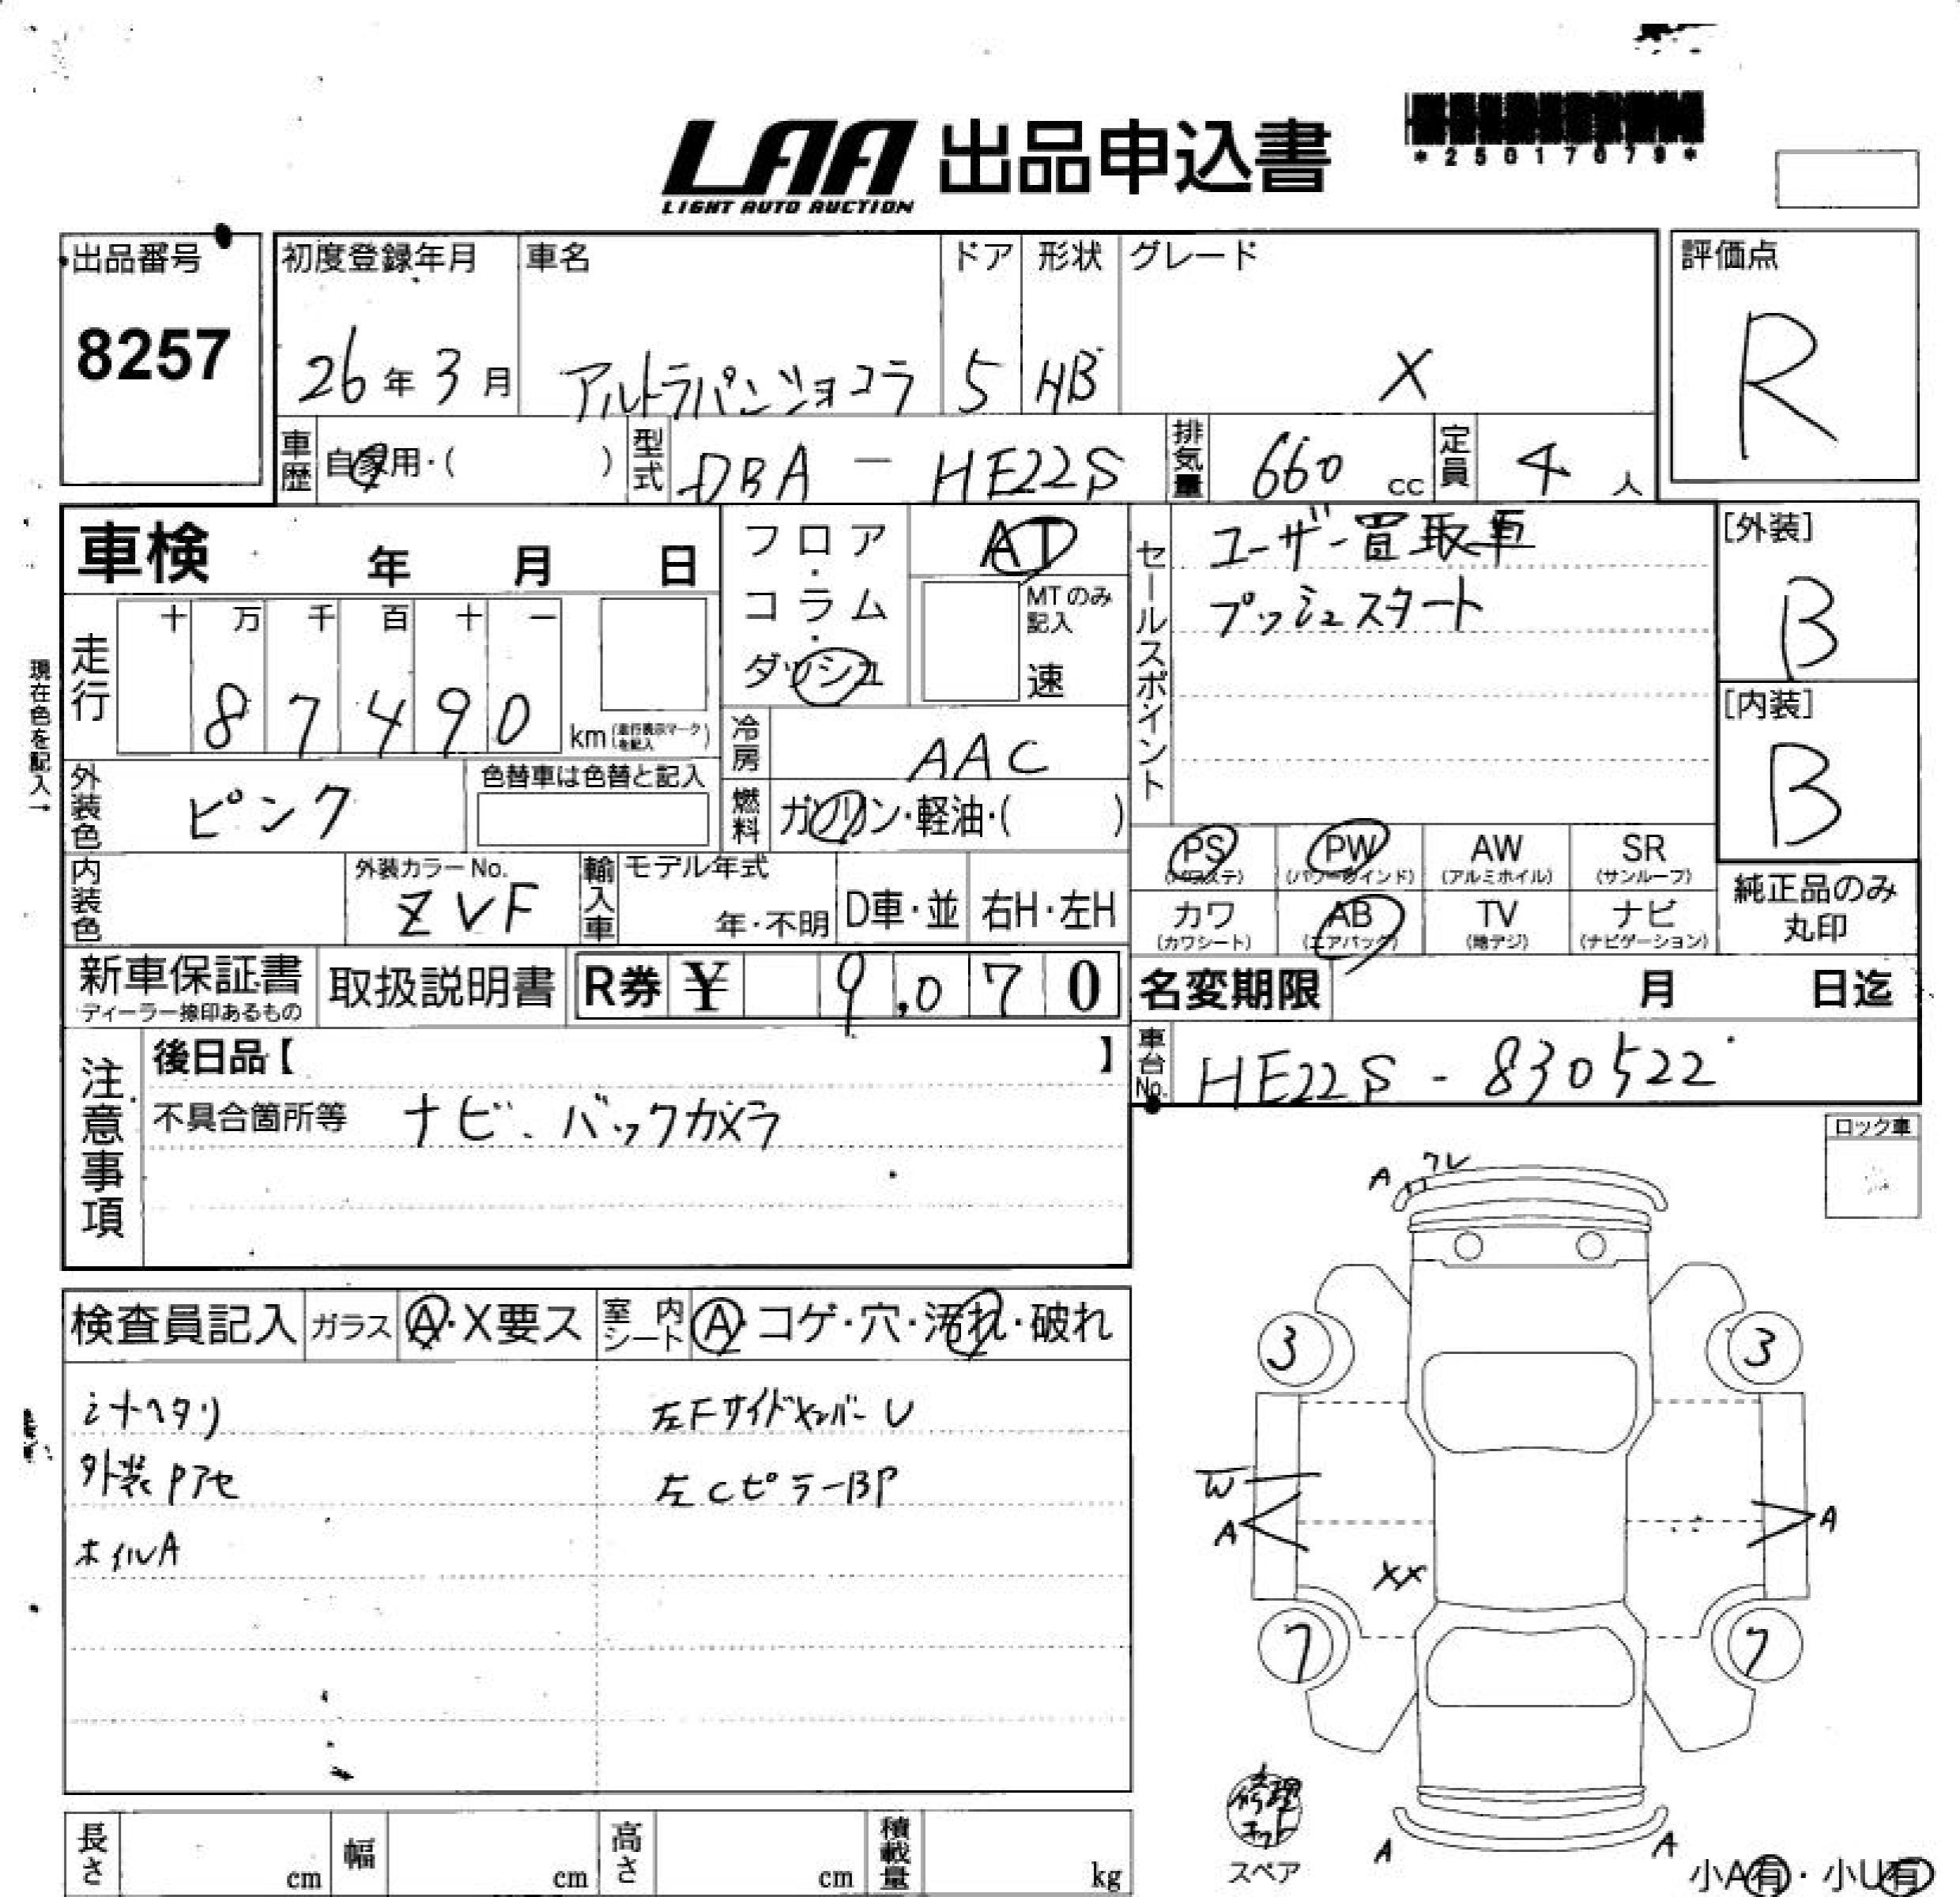 LAA 出品申込書
LIGHT AUTO AUCTION
*25017079*
出品番号
8257
初度登録年月
26年3月
車名
アルトラパンショコラ
ドア
5
形状
HB
グレード
X
評価点
R
車歴 自家用・( )
型式 DBA - HE22S
排気量 660 cc
定員 4 人
車検 年 月 日
走行
十 万 千 百 十 一
8 7 4 9 0
km (走行表示マークを記入)
現在色を記入→
フロア・コラム・ダッシュ
AT
MTのみ記入
速
セールスポイント
ユーザー買取車
プッシュスタート
[外装]
B
[内装]
B
冷房 AAC
外装色 ピンク
色替車は色替と記入
燃料 ガソリン・軽油・( )
内装色
外装カラーNo.
ZVF
輸入車
モデル年式
年・不明
D車・並
右H・左H
PS (パワステ)
PW (パワーウインド)
AW (アルミホイル)
SR (サンルーフ)
カワ (カワシート)
AB (エアバック)
TV (地デジ)
ナビ (ナビゲーション)
純正品のみ
丸印
新車保証書
ディーラー捺印あるもの
取扱説明書
R券 ¥ 9,070
名変期限 月 日迄
車台No. HE22S - 830522
注意事項
後日品【 】
不具合箇所等 ナビ、バックカメラ
ロック車
検査員記入
ガラス A・X要ス
室内シート A・コゲ・穴・汚れ・破れ
シートヘタリ
外装Pアセ
ホイルA
左FサイドメンバーU
左CピラーBP
A クレ
3
3
W
A
A
XX
7
7
修理キット
スペア
A
A
長さ cm
幅 cm
高さ cm
積載量 kg
小A有・小U有